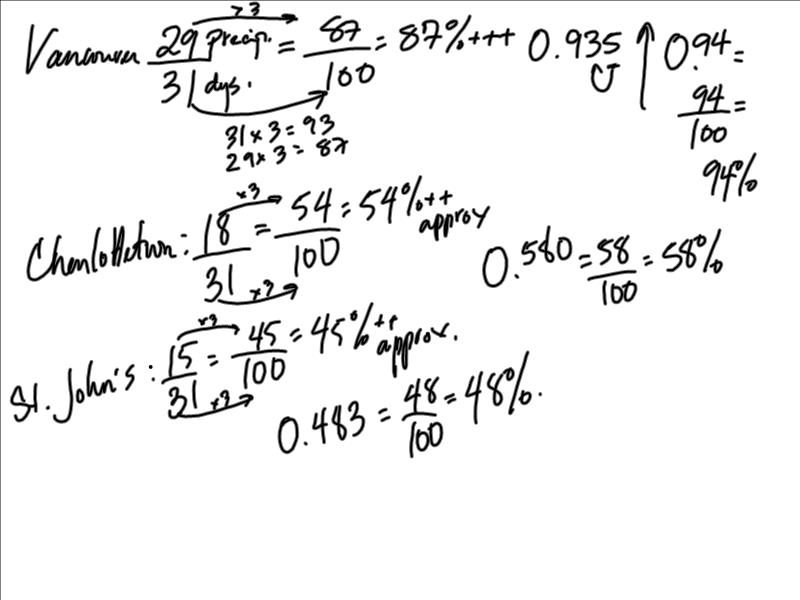 Vancouver 29 precip. / 31 dys. = 87 / 100 = 87%+++ 0.935 0.94 = 94 / 100 = 94%
×3
31 × 3 = 93
29 × 3 = 87
Charlottetown: 18 / 31 = 54 / 100 = 54%++ approx
×3
×3
0.580 = 58 / 100 = 58%
St. John's: 15 / 31 = 45 / 100 = 45%++ approx.
×3
×3
0.483 = 48 / 100 = 48%.